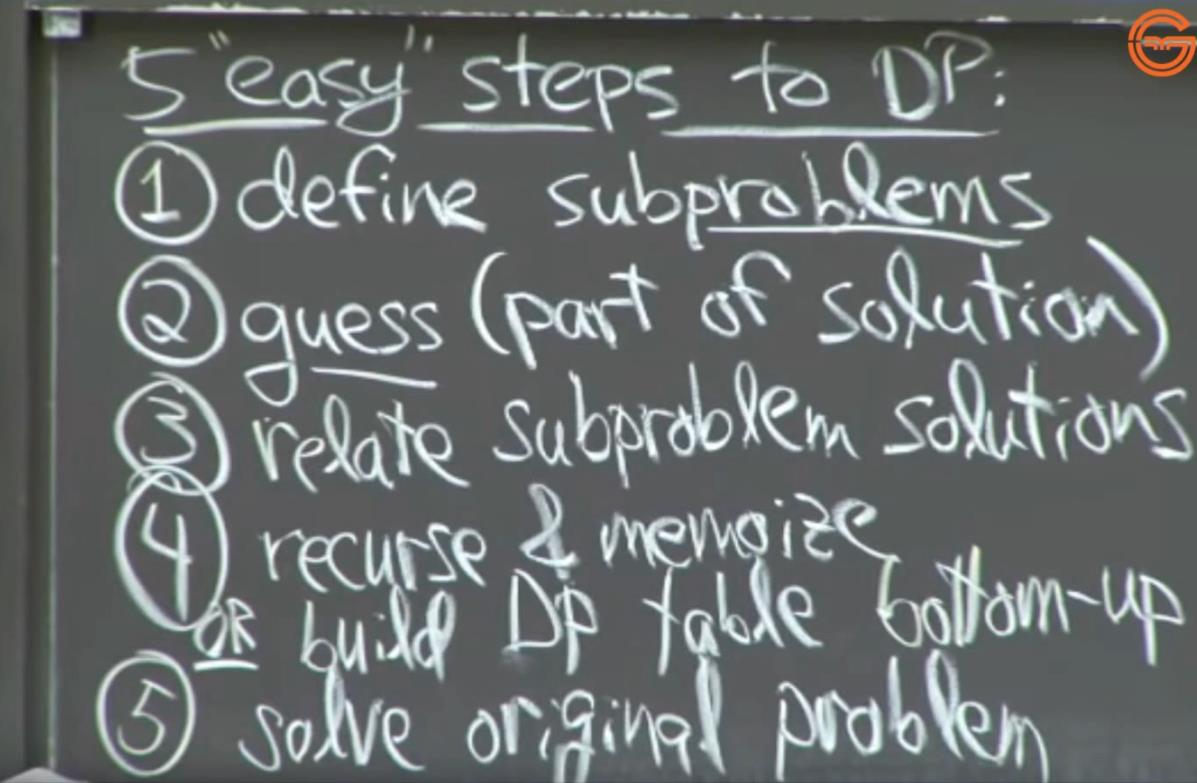 5 "easy" steps to DP:
① define subproblems
② guess (part of solution)
③ relate subproblem solutions
④ recurse & memoize
OR build DP table bottom-up
⑤ solve original problem